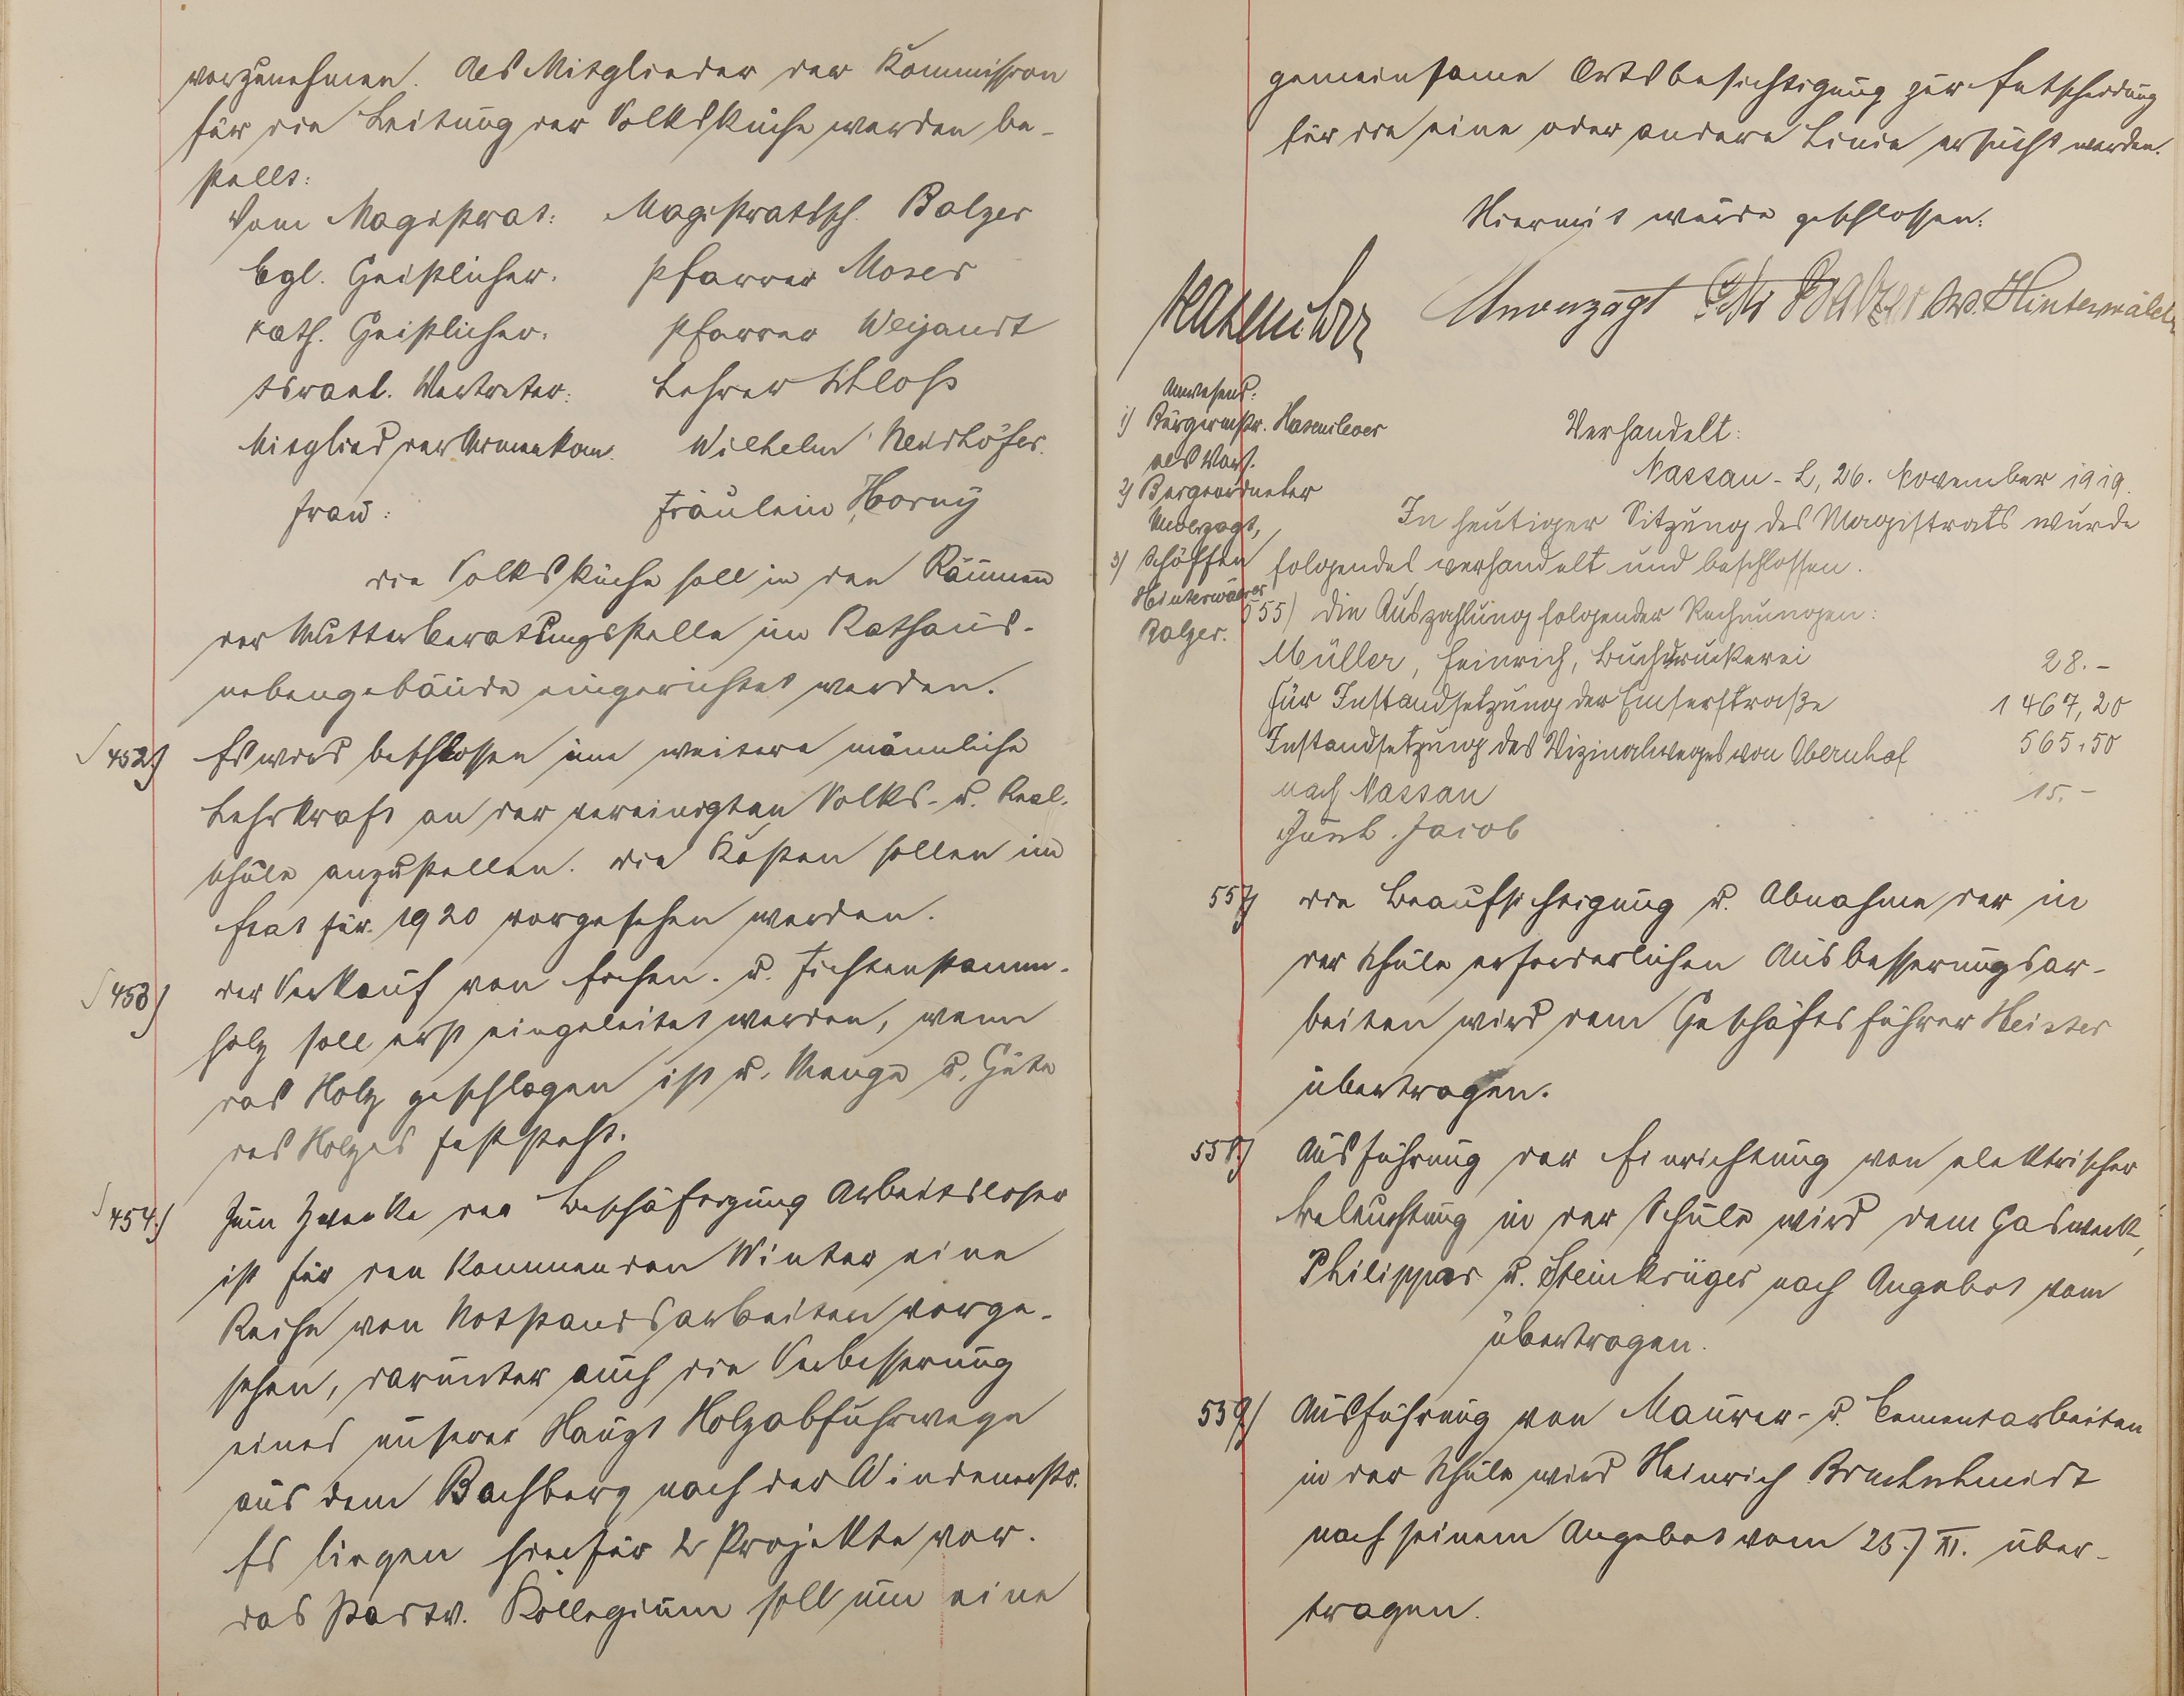 vorzunehmen. Als Mitglieder der Kommission
für die Leitung der Volksküche werden be-
stellt:
Vom Magistrat: Magistratssch. Balzer
evgl. Geistlicher: Pfarrer Moser
kath. Geistlicher: Pfarrer Weijandt
Israel. Vertreter: Lehrer Schloß
Mitglied der Armenkom. Wilhelm Neidhöfer.
Frau: Fräulein Horny
Die Volksküche soll in den Räumen
der Mutterberatungsstelle im Rathaus-
nebengebäude eingerichtet werden.
452) Es wird beschlossen eine weitere männliche
Lehrkraft an der vereinigten Volks- u. Real-
schule anzustellen. Die Kosten sollen im
Etat für 1920 vorgesehen werden.
453) Der Verkauf von Eichen- u. Fichtenstamm-
holz soll erst eingeleitet werden, wenn
das Holz geschlagen ist u. Menge u. Güte
des Holzes feststeht.
454) Zum Zwecke der Beschäftigung Arbeitsloser
ist für den kommenden Winter eine
Reihe von Notstandsarbeiten vorge-
sehen, darunter auch die Verbesserung
eines unserer Haupt Holzabfuhrwege
aus dem Bachberg nach der Windenerstr.
Es liegen hierfür 2 Projekte vor.
Das Stadtv. Kollegium soll um eine
gemeinsame Ortsbesichtigung zur Entscheidung
für die eine oder andere Linie ersucht werden.
Hiermit wurde geschlossen:
Hasenclever Unverzagt Chr Balzer Hinterwäller
Anwesend:
1) Bürgermstr. Hasenclever
als Vors.
2) Beigeordneter
Unverzagt,
3) Schöffen
Hinterwäller
Balzer.
Verhandelt:
Nassau-L, 26. November 1919.
In heutiger Sitzung des Magistrats wurde
folgendes verhandelt und beschlossen.
555) Die Auszahlung folgender Rechnungen:
Müller, Heinrich, Buchdruckerei 28.-
für Instandsetzung der Emserstraße 1467,20
Instandsetzung des Vizinalweges von Obernhof 565,50
nach Nassau 15.-
Jacob
557) Die Beaufsichtigung u. Abnahme der in
der Schule erforderlichen Ausbesserungsar-
beiten wird dem Geschäftsführer Heister
übertragen.
558) Ausführung der Einrichtung von elektrischer
Beleuchtung in der Schule wird dem Gaswerk,
Philippar u. Steinkrüger nach Angebot vom
übertragen.
559) Ausführung von Maurer- u. Cementarbeiten
in der Schule wird Heinrich Bruchschmidt
nach seinem Angebot vom 25./XI. über-
tragen.